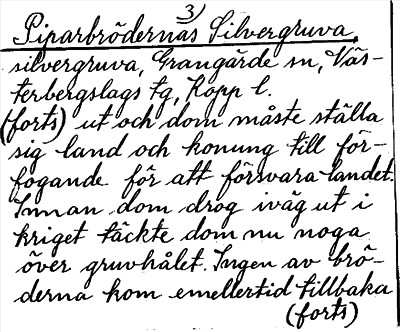 3)
Piparbrödernas Silvergruva,
silvergruva, Grangärde sn, Väs-
terbergslags tg, Kopp l.
(forts) ut och dom måste ställa
sig land och konung till för-
fogande för att försvara landet.
Innan dom drog iväg ut i
kriget täckte dom nu noga
över gruvhålet. Ingen av brö-
derna kom emellertid tillbaka
(forts)